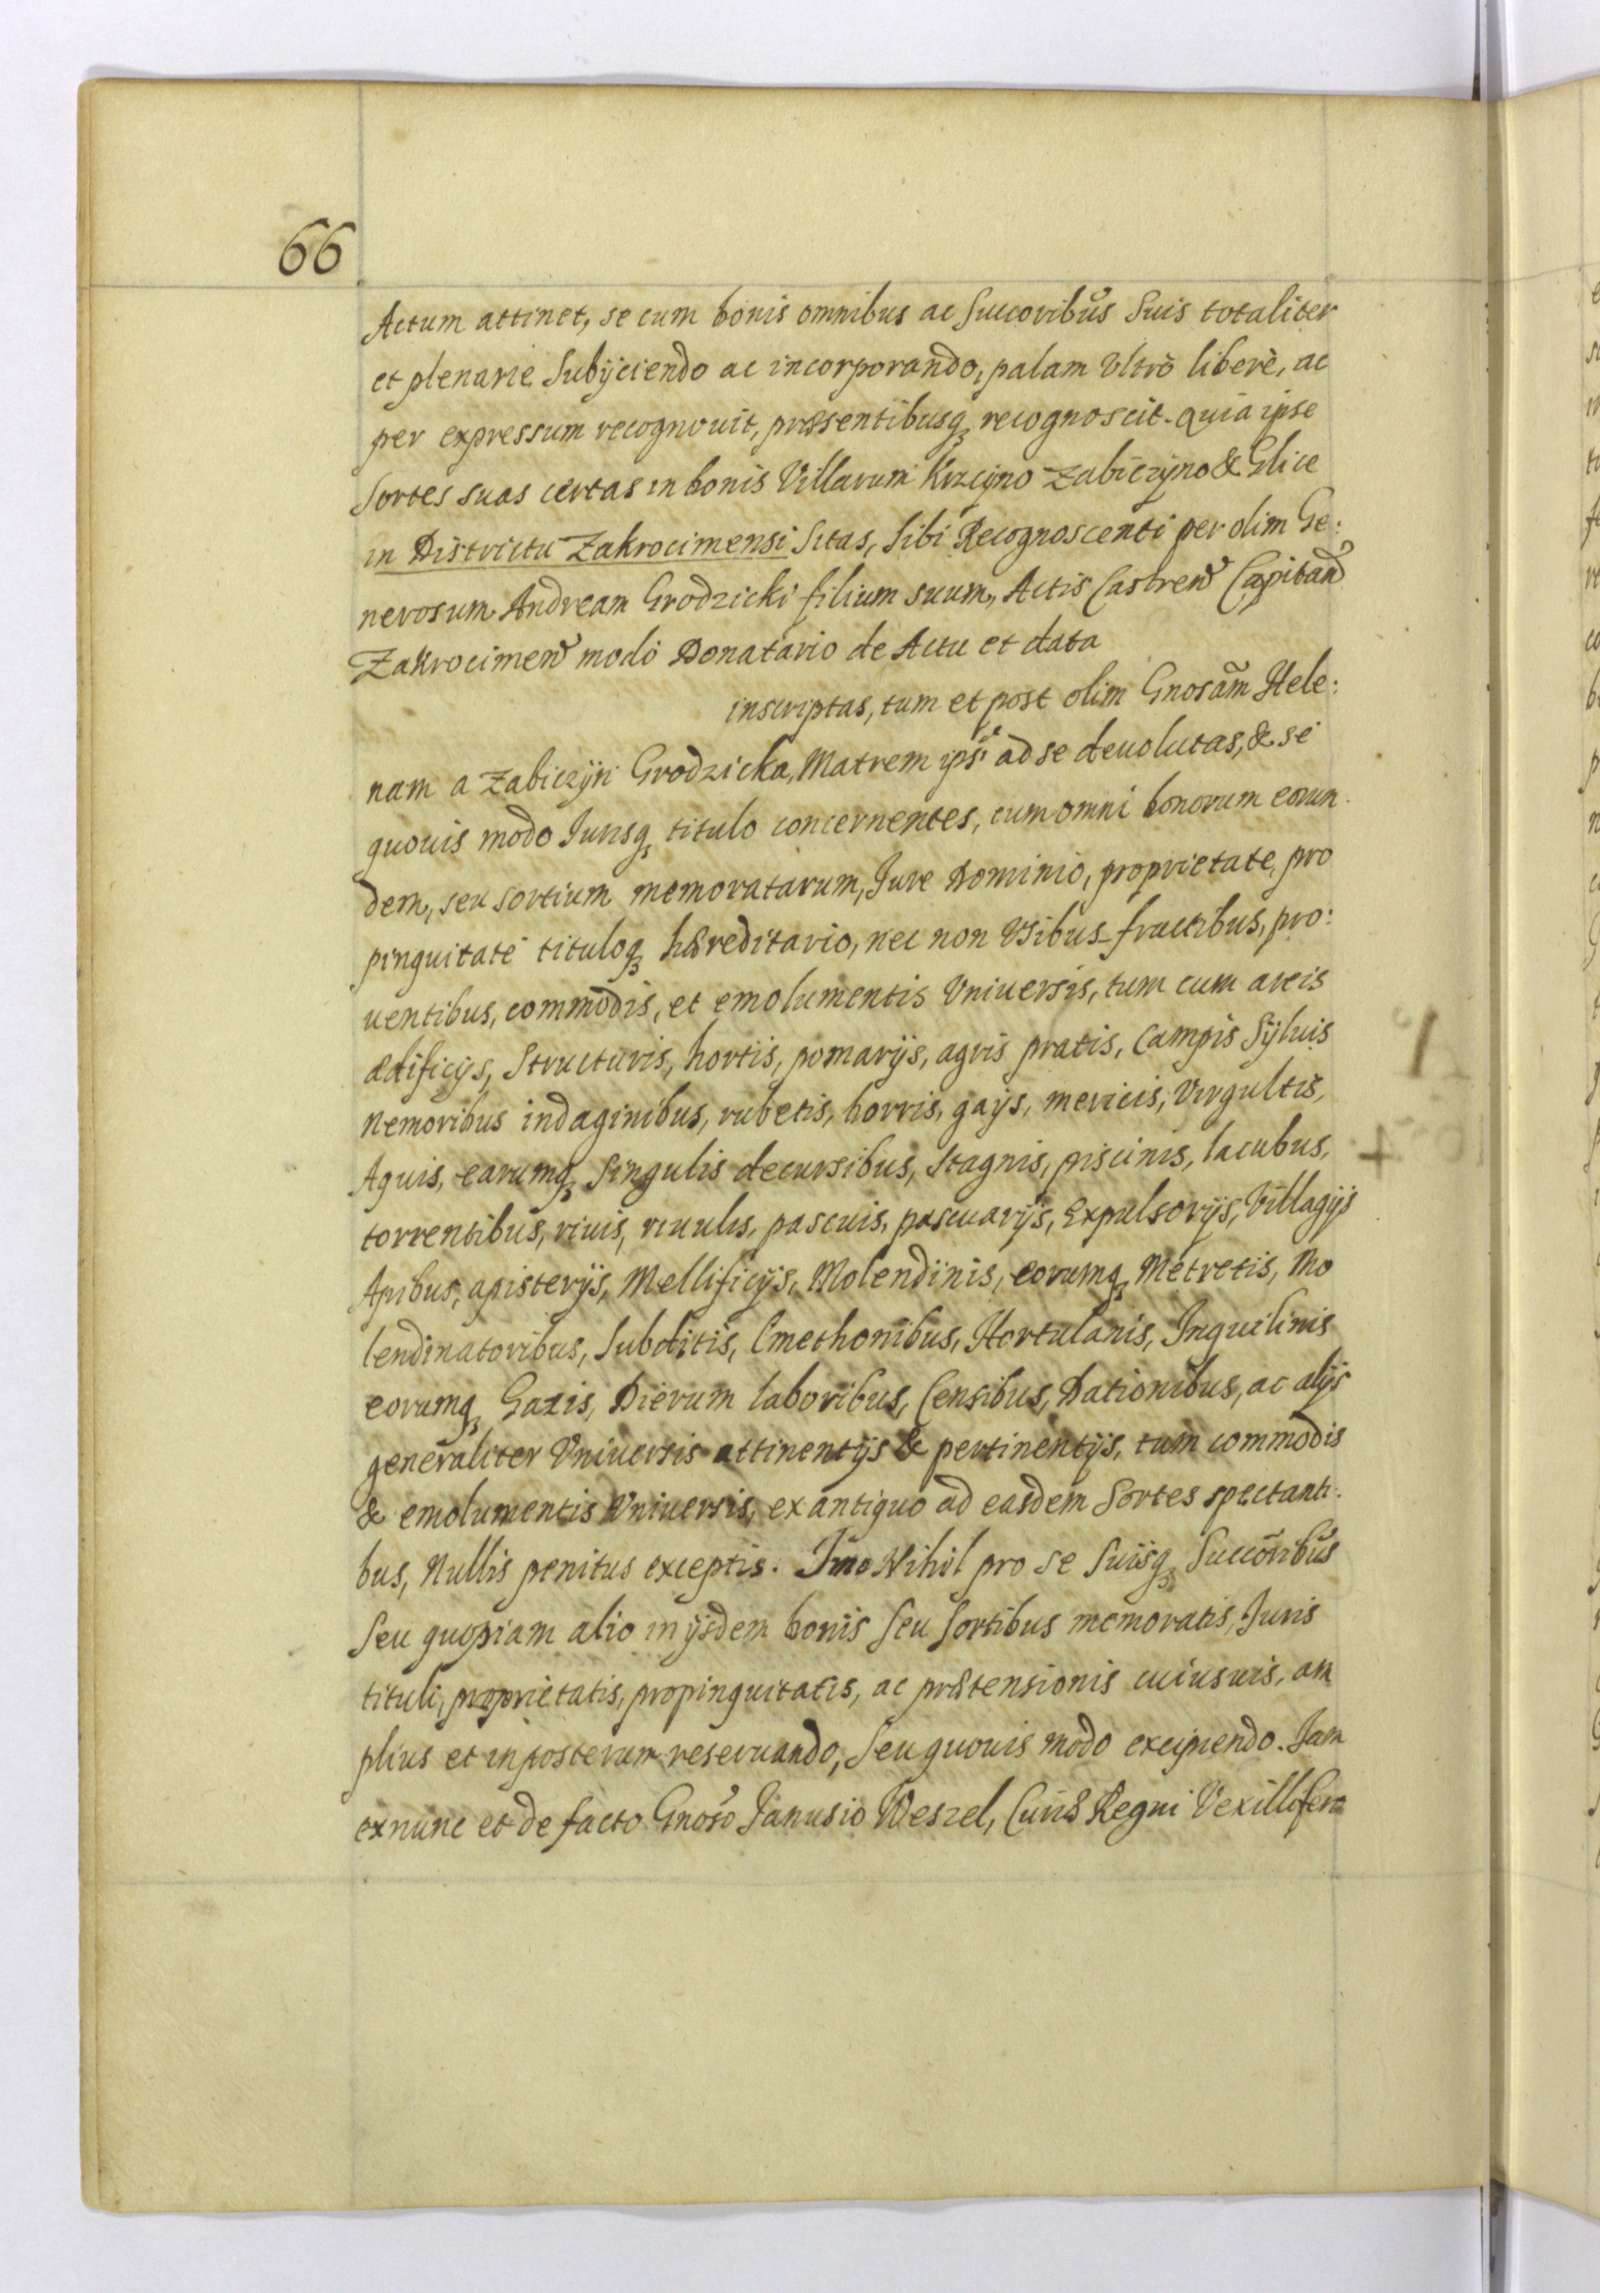 66
Actum attinet, se cum bonis omnibus ac succoribus suis totaliter
et plenarie subijciendo ac incorporando, palam Vltrò liberè, ac
per expressum recognouit, præsentibusq₃ recognoscit. Quia ipse
Sortes suas certas in bonis Villarum Krzcijno Zabiczijno & Glice
in Districtu Zakrocimensi Sitas, Sibi Recognoscenti per olim Ge:
nerosum Andream Grodzicki filium suum, Actis Castren Capitan
Zakrocimen modo Donatario de Actu et data
inscriptas, tum et post olim Gnosãm Hele:
nam a Zabiczijn Grodzicka, Matrem ipsi' ad se deuolutas, & se
quouis modo Jurisq₃ titulo concernentes, cum omni bonorum eorun
dem, seu sortium memoratarum, Jure Dominio, proprietate, pro
pinquitate tituloq₃ hæreditario, nec non Vsibus-fructibus, pro:
uentibus, commodis, et emolumentis Vniuersis, tum cum areis
ædificijs, Structuris, hortis, pomarijs, agris pratis, Campis Syluis
Nemoribus indaginibus, rubetis, borris, gaijs, mericis, Virgultis,
Aquis, earumq₃ Singulis decursibus, Stagnis, piscinis, lacubus,
torrentibus, riuis, riuulis, pascuis, pascuarijs, Expulsorijs, Villagijs
Apibus, apisterijs, Mellificijs, Molendinis, eorumq₃ Metretis, Mo
lendinatoribus, Subditis, Cmethonibus, Hortulanis, Inquilinis
eorumq₃ Gazis, Dierum laboribus, Censibus, Dationibus, ac alijs
generaliter Vniuersis attinentijs & pertinentijs, tum commodis
& emolumentis Vniuersis, ex antiquo ad easdem Sortes spectanti.
bus, Nullis penitus exceptis. Imo Nihil pro se Suisq₃ Succõribus
Seu quopiam alio in ijsdem bonis Seu Sortibus memoratis, Juris
tituli, proprietatis, propinquitatis, ac prætensionis cuiusuis, am
plius et in posterum reseruando, Seu quouis modo excipiendo. Jam
ex nunc et de facto Gnoso Janusio Weszel, Curiæ Regni Vexillifero